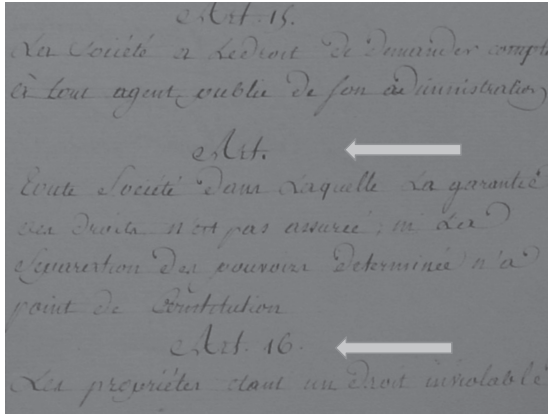 Art. 15.
La Société a le droit de demander compte
à tout agent public de son administration
Art.
Toute Société dans laquelle la garantie
des droits n'est pas assurée, ni la
séparation des pouvoirs determinée n'a
point de Constitution
Art. 16.
Les propriétés étant un droit inviolable